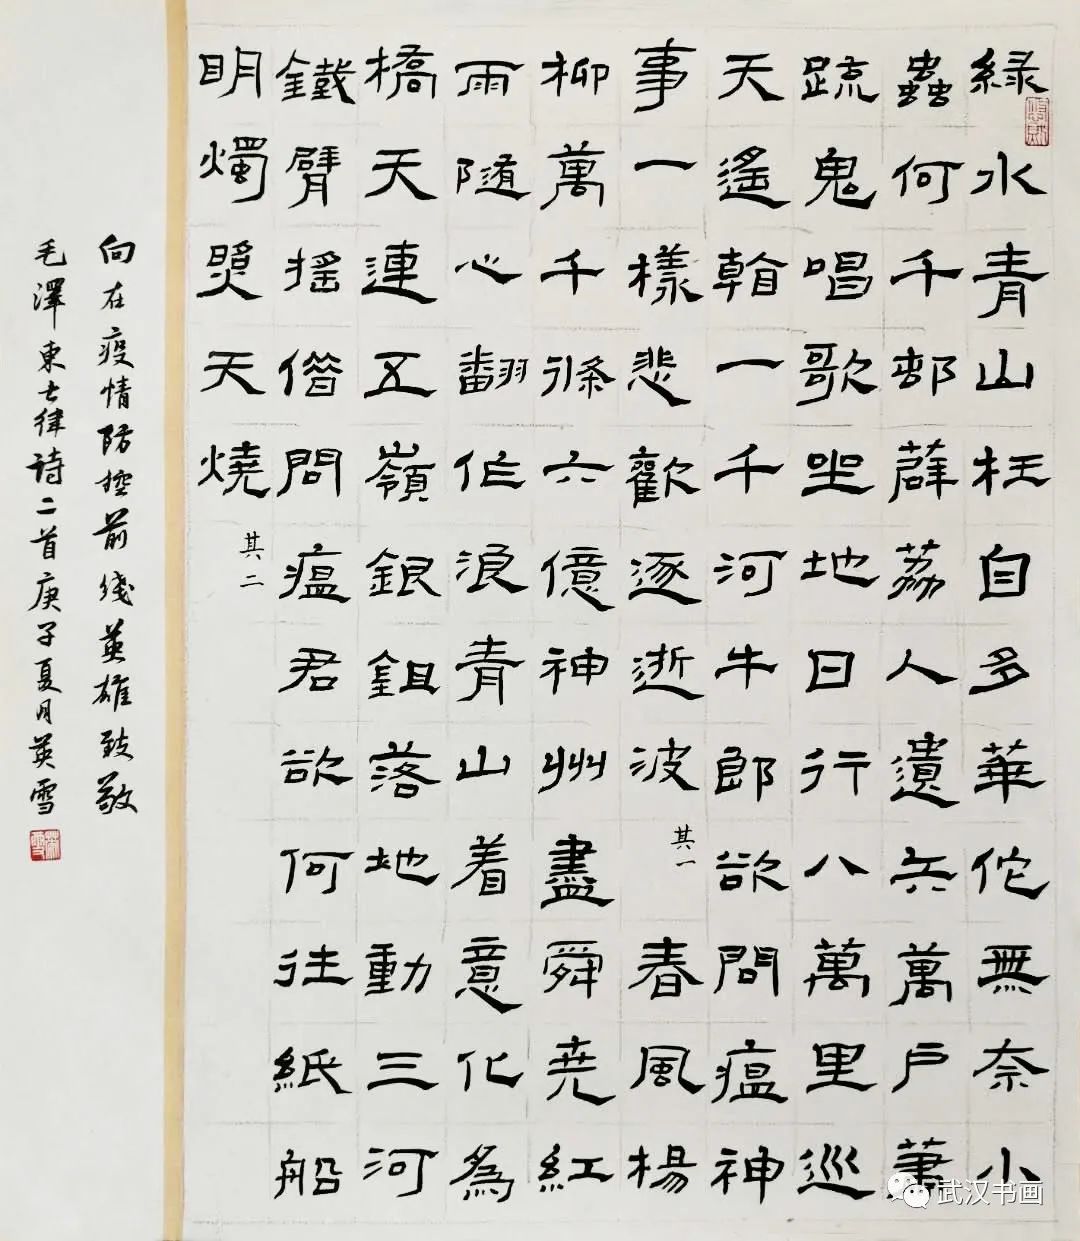 緑水青山枉自多華佗無奈小
蟲何千邨薜荔人遺矢萬戶蕭
䟽鬼唱歌坐地日行八萬里巡
天遙看一千河牛郎欲問瘟神
事一樣悲歡逐逝波
其一
春風楊
柳萬千條六億神州盡舜尭紅
雨隨心翻作浪青山着意化為
橋天連五嶺銀鉏落地動三河
鐵臂搖借問瘟君欲何往紙船
明燭煚天燒
其二
向在疫情防控前线英雄致敬
毛澤東七律詩二首庚子夏月英雪
武汉书画